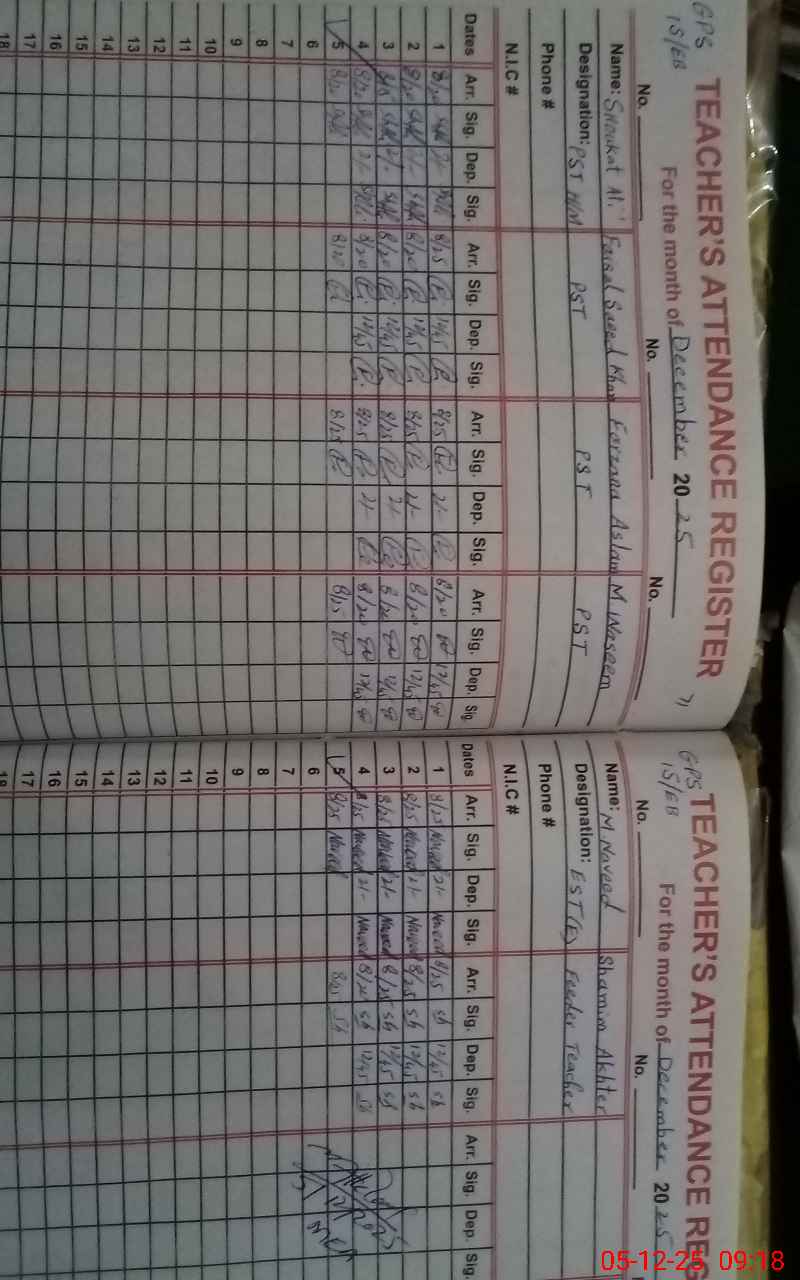 GPS
15/EB
TEACHER'S ATTENDANCE REGISTER
For the month of December 2025
No. No. No.
Name: Shoukat Ali Faisal Saeed Khan Farzana Aslam M Waseem
Designation: PST H/M PST PST PST
Phone #
N.I.C #
Dates Arr. Sig. Dep. Sig. Arr. Sig. Dep. Sig. Arr. Sig. Dep. Sig. Arr. Sig. Dep. Sig.
1 8/20 2/- 8/25 12/45 8/25 2/- 8/20 12/45
2 8/20 2/- 8/20 12/45 8/25 2/- 8/20 12/45
3 8/15 2/- 8/20 12/45 8/25 2/- 8/20 12/45
4 8/20 2/- 8/20 12/45 8/25 2/- 8/20 12/45
5 8/20 8/20 8/25 8/25
6
7
8
9
10
11
12
13
14
15
16
17
18
GPS
15/EB
TEACHER'S ATTENDANCE REG
For the month of December 2025
No. No.
Name: M. Naveed Shamim Akhter
Designation: EST (E) Feeder Teacher
Phone #
N.I.C #
Dates Arr. Sig. Dep. Sig. Arr. Sig. Dep. Sig. Arr. Sig. Dep. Sig.
1 8/25 Naveed 2/- Naveed 8/25 sb 12/45 sb
2 8/25 Naveed 2/- Naveed 8/25 sb 12/45 sb
3 8/25 Naveed 2/- Naveed 8/25 sb 12/45 sb
4 8/25 Naveed 2/- Naveed 8/20 sb 12/45 sb
5 8/25 Naveed 8/25 sb
6
7
8
9
10
11
12
13
14
15
16
17
18
05-12-25 09:18